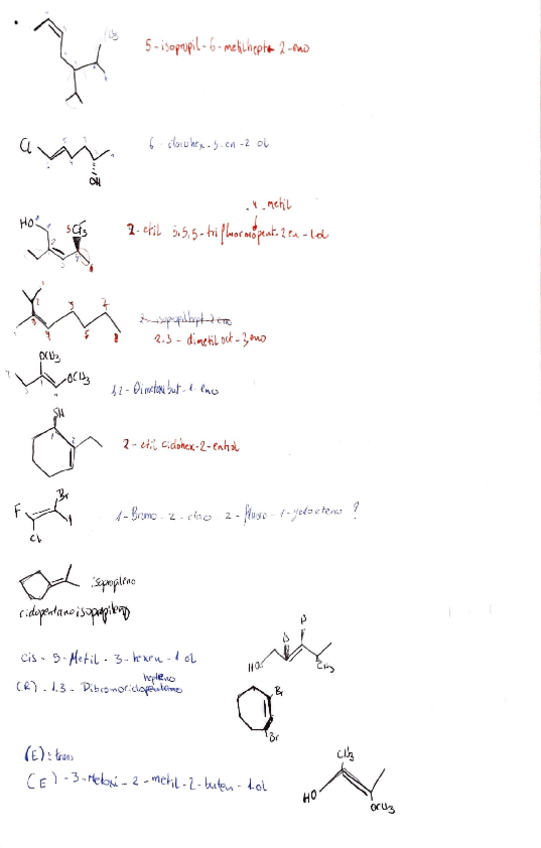 5-isopropil-6-metilhept-2-eno
Cl
6-clorohex-4-en-2 ol
OH
4 metil
HO
CF3
2-etil 5,5,5-trifluoro pent-2en-1ol
2-isopropilhept-2eno
2,3-dimetiloct-3,eno
OCH3
OCH3
1,2-Dimetoxibut-1-eno
SH
2-etil ciclohex-2-entiol
Br
F
I
Cl
1-Bromo-2-cloro 2-fluoro-1-yodoeteno ?
isopropileno
ciclopentanoisopropileno
cis-5-Metil-3-hexen-1 ol
HO
CH3
hepteno
(R)-1,3-Dibromociclopenteno
Br
Br
(E): trans
(E)-3-Metoxi-2-metil-2-buten-1-ol
CH3
HO
OCH3